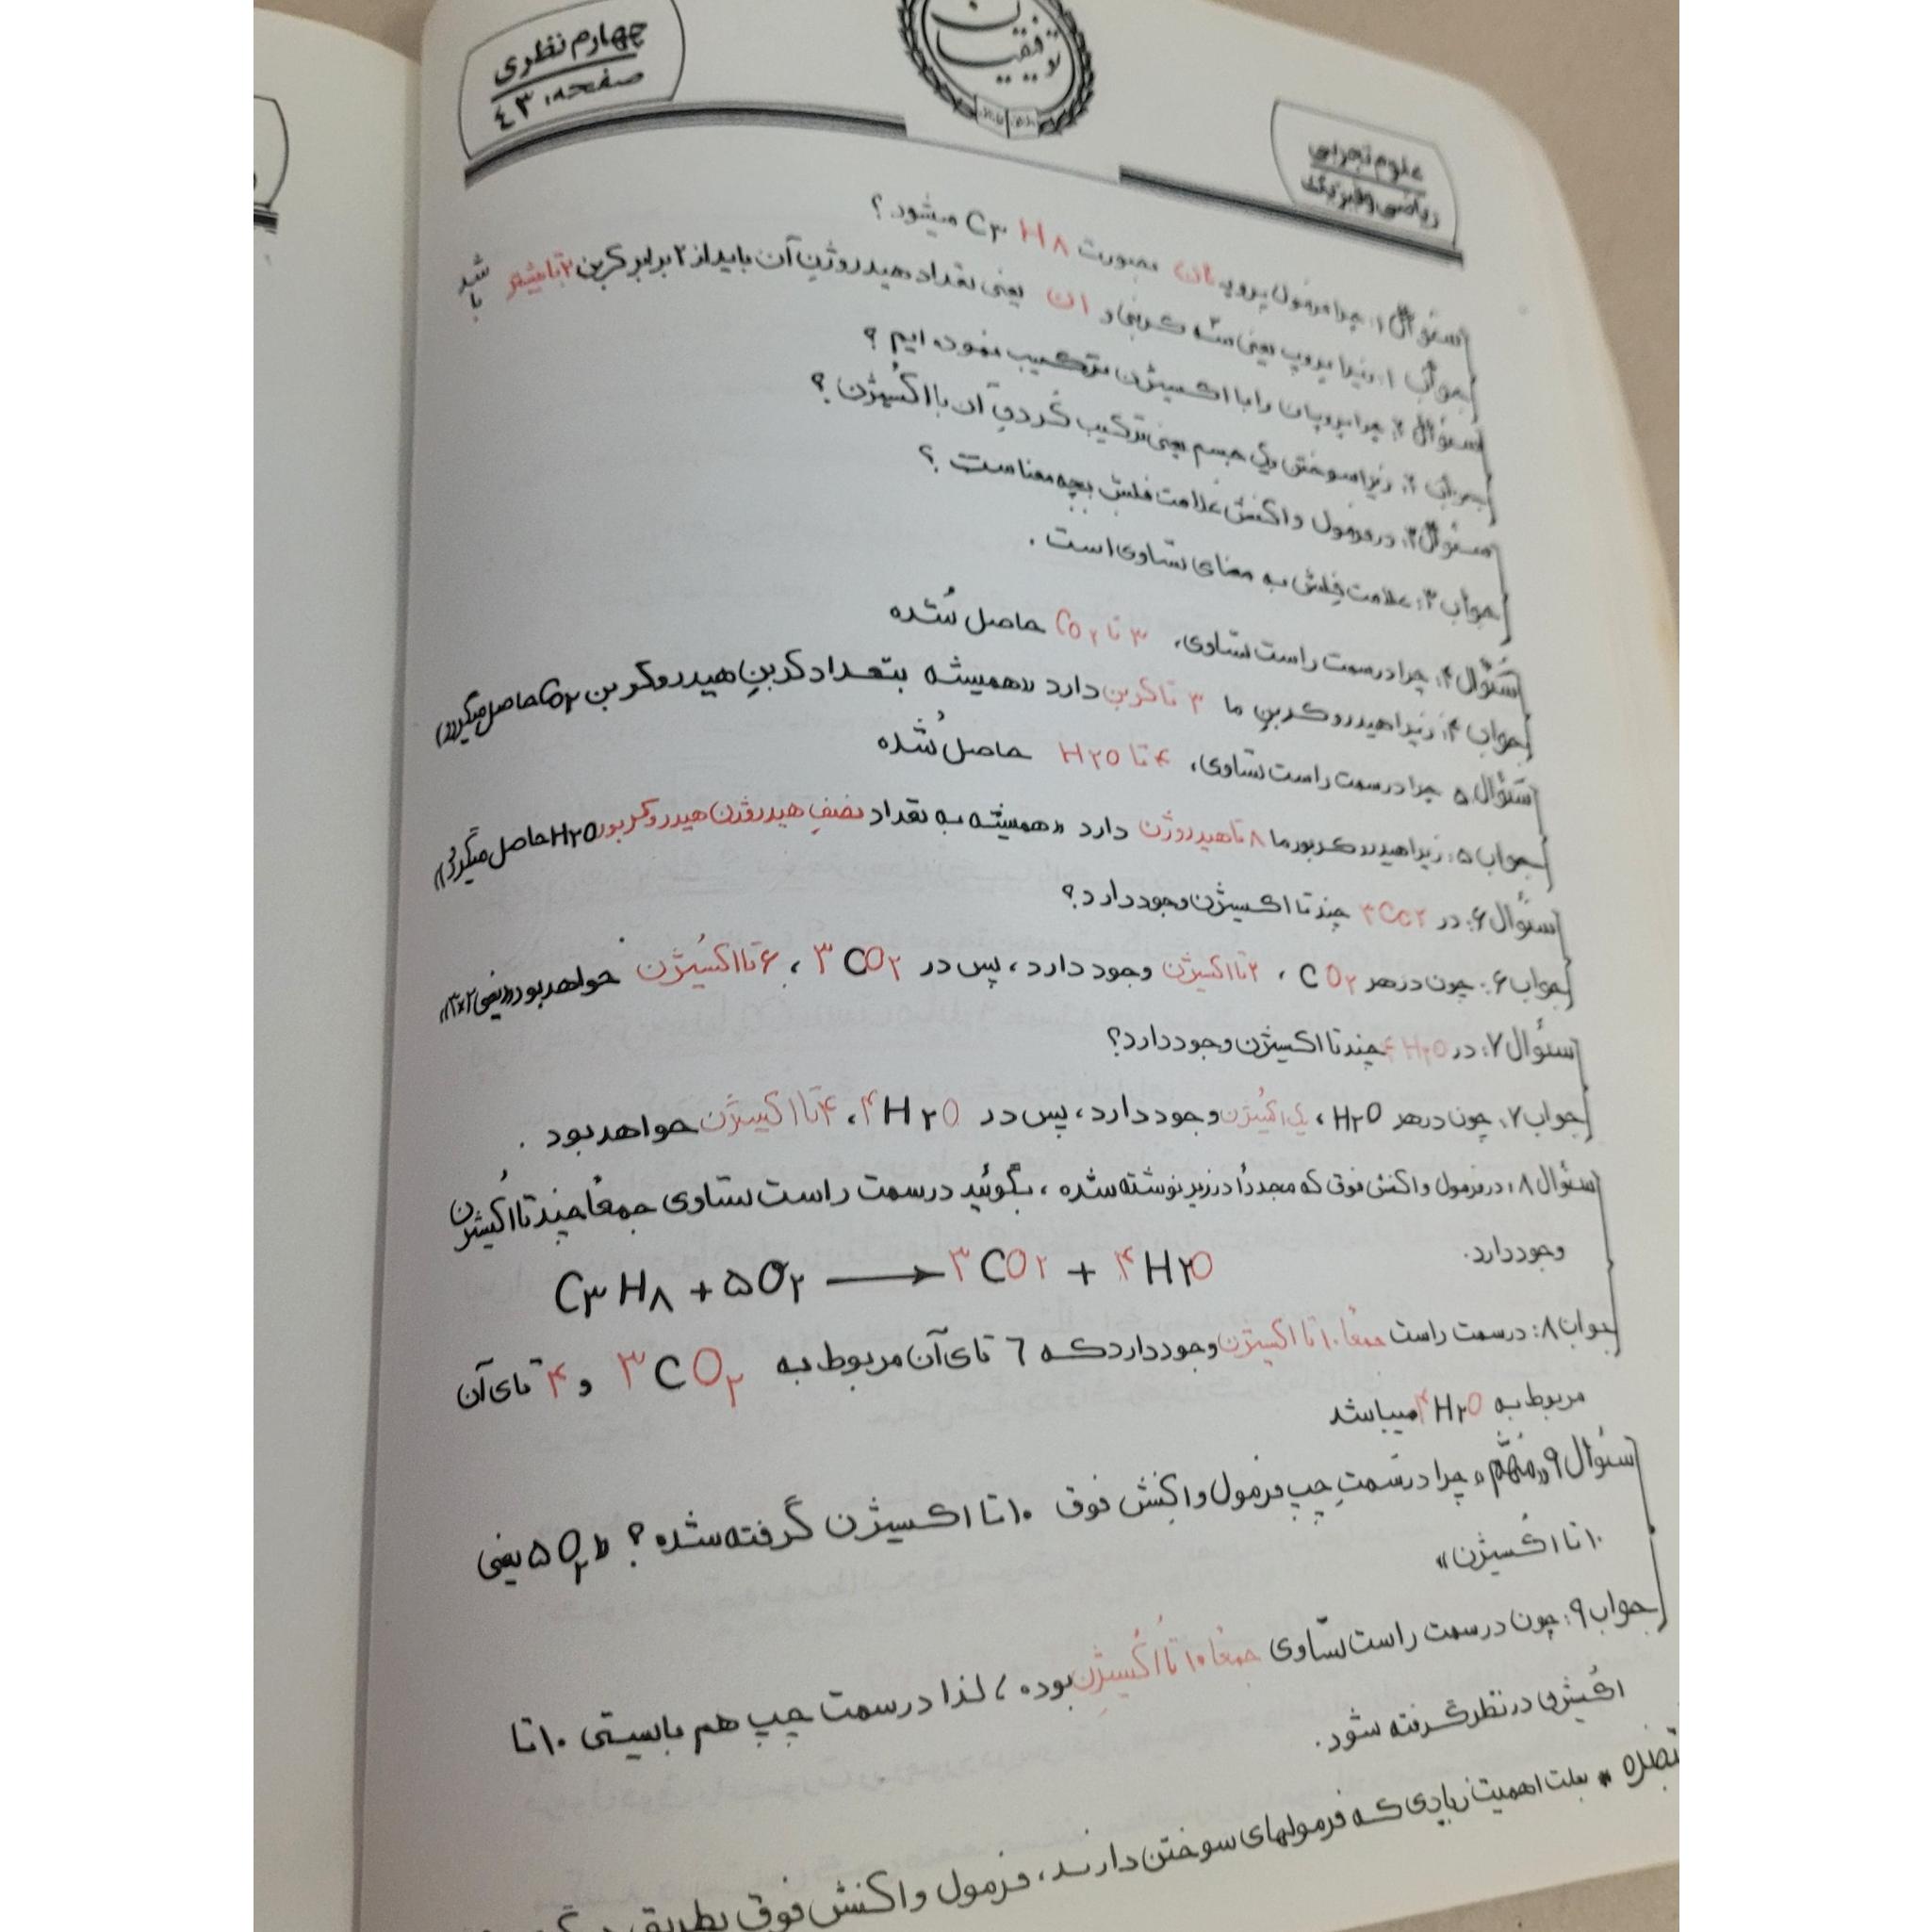 چهارم نظری
صفحه، ۴۳
توفیق
علوم تجربی
ریاضی و فیزیک
سئوال ۱: چرا فرمول پروپان بصورت C۳H۸ میشود؟
جواب ۱: زیرا پروپ یعنی سه کربنی و ان یعنی تعداد هیدروژن آن باید از ۲ برابر کربن ۲ تا بیشتر باشد
سئوال ۲: چرا پروپان را با اکسیژن ترکیب نموده ایم؟
جواب ۲: زیرا سوختن یک جسم یعنی ترکیب کردن آن با اکسیژن؟
سئوال ۳: در فرمول واکنش علامت فلش بچه معناست؟
جواب ۳: علامت فلش به معنای تساوی است.
سئوال ۴: چرا درسمت راست تساوی، ۳ تا CO۲ حاصل شده
جواب ۴: زیرا هیدروکربن ما ۳ تا کربن دارد «همیشه بتعداد کربن هیدروکربن CO۲ حاصل میگردد»
سئوال ۵ چرا درسمت راست تساوی، ۴ تا H۲O حاصل شده
جواب ۵: زیرا هیدروکربور ما ۸ تا هیدروژن دارد «همیشه به تعداد نصف هیدروژن هیدروکربور H۲O حاصل میگردد»
سئوال ۶: در ۳CO۲ چند تا اکسیژن وجود دارد؟
جواب ۶: چون در هر CO۲، ۲ تا اکسیژن وجود دارد، پس در ۳CO۲، ۶ تا اکسیژن خواهد بود «یعنی ۲×۳»
سئوال ۷: در ۴H۲O چند تا اکسیژن وجود دارد؟
جواب ۷: چون در هر H۲O، یک اکسیژن وجود دارد، پس در ۴H۲O، ۴ تا اکسیژن خواهد بود.
سئوال ۸: در فرمول واکنش فوق که مجدداً در زیر نوشته شده، بگوئید درسمت راست تساوی جمعاً چند تا اکسیژن
وجود دارد.
C۳H۸ + ۵O۲ ⟶ ۳CO۲ + ۴H۲O
جواب ۸: درسمت راست جمعاً ۱۰ تا اکسیژن وجود دارد که ۶ تای آن مربوط به ۳CO۲ و ۴ تای آن
مربوط به ۴H۲O میباشد
سئوال ۹ «مهّم» چرا درسمت چپ فرمول واکنش فوق ۱۰ تا اکسیژن گرفته شده؟ «۵O۲ یعنی
۱۰ تا اکسیژن»
جواب ۹: چون درسمت راست تساوی جمعاً ۱۰ تا اکسیژن بوده، لذا درسمت چپ هم بایستی ۱۰ تا
اکسیژن در نظر گرفته شود.
تبصره * بعلت اهمیت زیادی که فرمولهای سوختن دارند، فرمول واکنش فوق بطریق